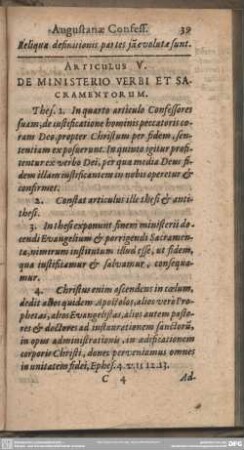 Augustanæ Confess. 39
Reliquæ definitionis partes jā evolutæ sunt.
ARTICULUS V.
DE MINISTERIO VERBI ET SA-
CRAMENTORUM.
Thes. 1. In quarto articulo Confessores
suam, de justificatione hominis peccatoris co-
ram Deo, propter Christum per fidem, sen-
tentiam exposuerunt. In quinto igitur profi-
tentur ex verbo Dei, per quæ media Deus fi-
dem illam justificantem in nobis operetur &
confirmet.
2. Constat articulus ille thesi & anti-
thesi.
3. In thesi exponunt finem ministerii do-
cendi Evangelium & porrigendi Sacramen-
ta, nimirum institutum illud esse, ut fidem,
qua justificamur & salvamur, consequa-
mur.
4. Christus enim ascendens in cœlum,
dedit alios quidem Apostolos, alios vero Pro-
phetas, alios Evangelistas, alios autem pasto-
res & doctores ad instaurationem sanctorū,
in opus administrationis, in ædificationem
corporis Christi, donec perveniamus omnes
in unitatem fidei, Ephes. 4. v. 11 12.13.
C 4 Ad-